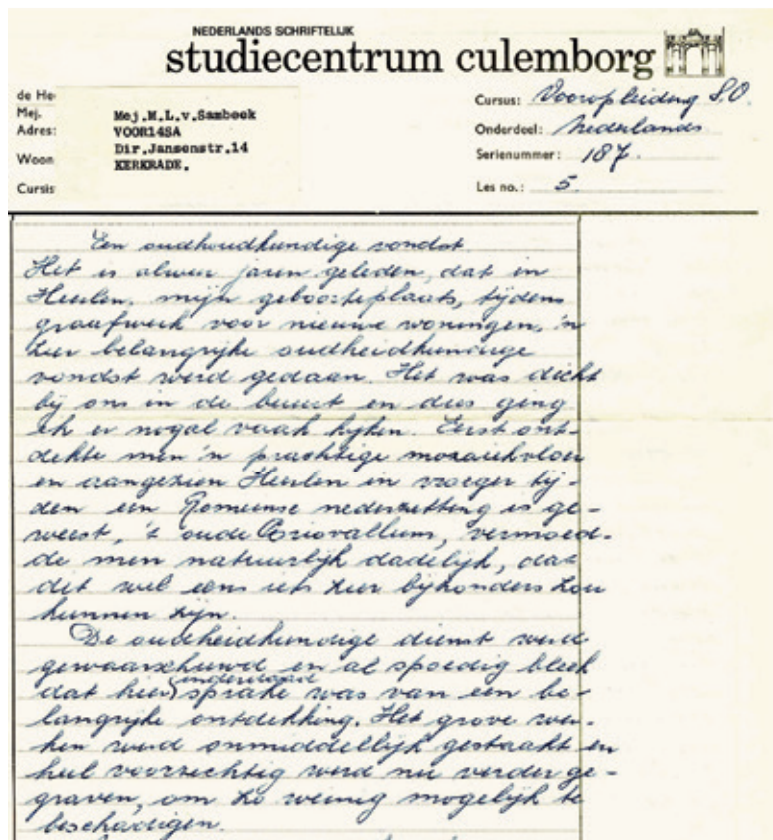 NEDERLANDS SCHRIFTELIJK
studiecentrum culemborg
de He
Mej.
Adres:
Woon
Cursis
Mej.M.L.v.Sambeek
VOOR14SA
Dir.Jansenstr.14
KERKRADE.
Cursus: Vooropleiding S.O.
Onderdeel: Nederlands
Serienummer: 187.
Les no.: 5
Een oudhoudkundige vondst.
Het is alweer jaren geleden, dat in
Heerlen, mijn geboorteplaats, tijdens
graafwerk voor nieuwe woningen, 'n
zeer belangrijke oudheidkundige
vondst werd gedaan. Het was dicht
bij ons in de buurt en dus ging
ik er nogal vaak kijken. Eerst ont-
dekte men 'n prachtige mozaiekvloer
en aangezien Heerlen in vroeger tij-
den een Romeinse nederzetting is ge-
weest, 't oude Coriovallum, vermoed-
de men natuurlijk dadelijk, dat
dit wel eens iets zeer bijzonders zou
kunnen zijn.
De oudheidkundige dienst werd
gewaarschuwd en al spoedig bleek
dat hier inderdaad sprake was van een be-
langrijke ontdekking. Het grove wer-
ken werd onmiddellijk gestaakt en
heel voorzichtig werd nu verder ge-
graven, om zo weinig mogelijk te
beschadigen.